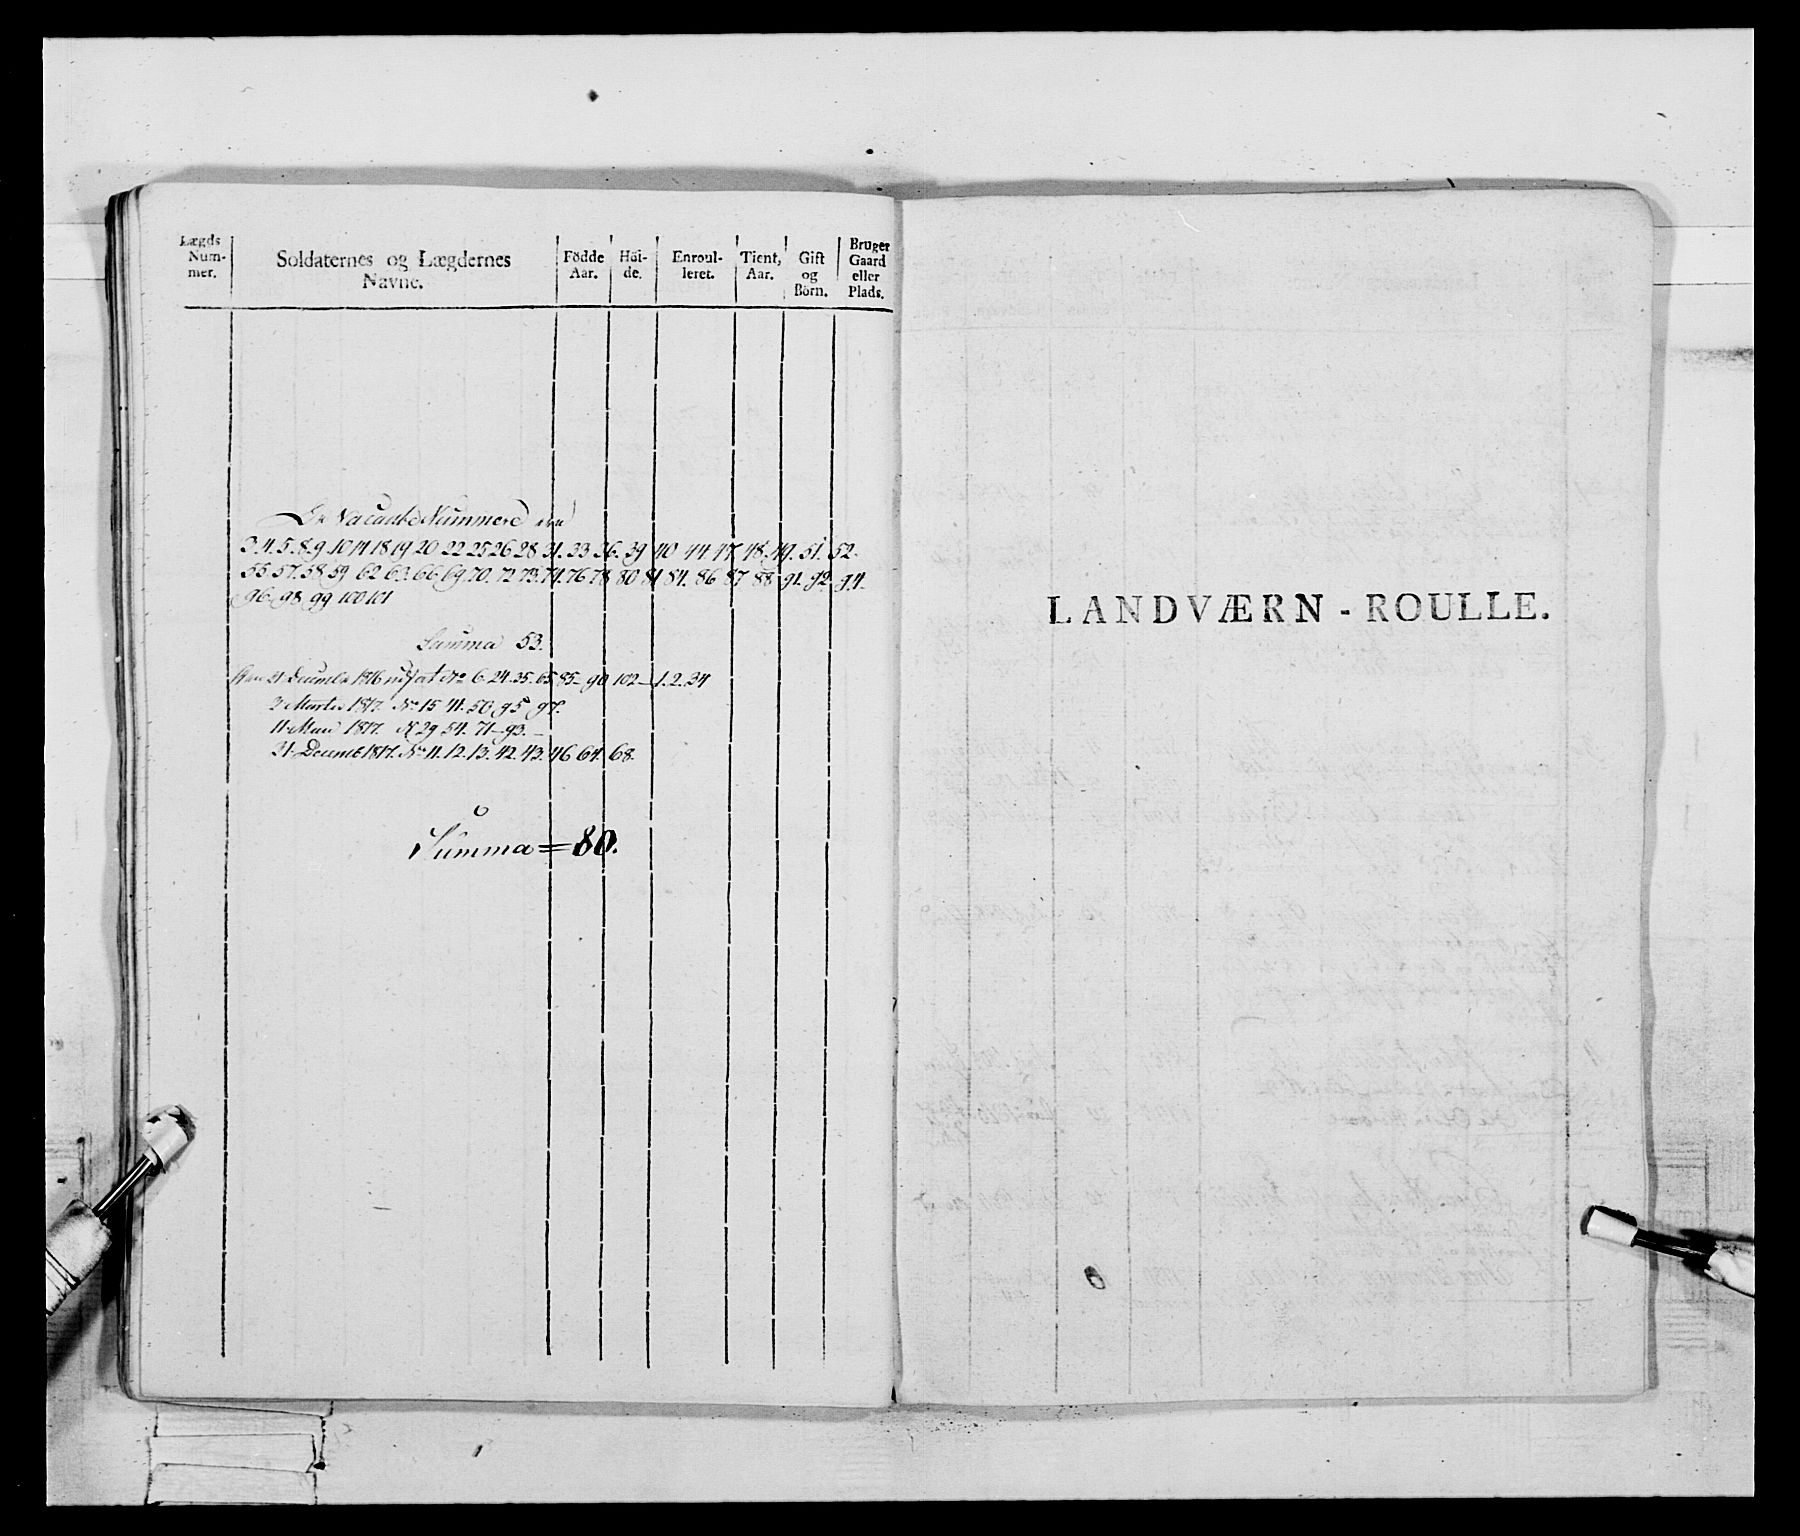 Lægds Num-mer.
Soldaternes og Lægdernes Navne.
Födde Aar.
Höi-de.
Enroul-leret.
Tient, Aar.
Gift og Börn.
Bruger Gaard eller Plads.
De Vacante Nummere ere
3. 4. 5. 8. 9. 10 14 18 19 20 22 25 26 28 31. 33 36. 39 40 44 47. 48. 49. 51. 52.
55. 57. 58 59 62 63. 66. 69 70. 72 73. 74. 76 78 80 81 84. 86 87 88 91. 92. 94.
96. 98 99 100 101
Summa 53.
31 Decembr 1816 No 6. 24. 35. 65 85 - 90 102 - 1. 2. 34
2 Martii 1817. No 15 41. 50. 95 97.
11 1817. No 29 54. 71 - 93. -
31 Decemb 1817. No 11. 12. 13. 42. 43. 46 64. 68.
Summa = 80.
LANDVÆRN - ROULLE.